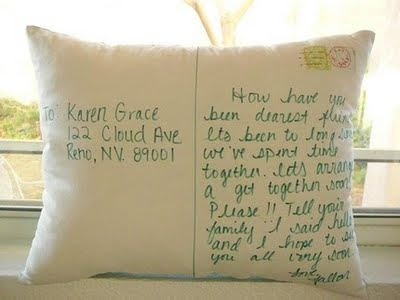 To: Karen Grace
122 Cloud Ave
Reno, NV. 89001
How have you
been dearest
Its been to long
we've spent time
together. lets
a get together soon
Please!! Tell your
family I said hello
and I hope to see
you all very soon.
love,
Fallon